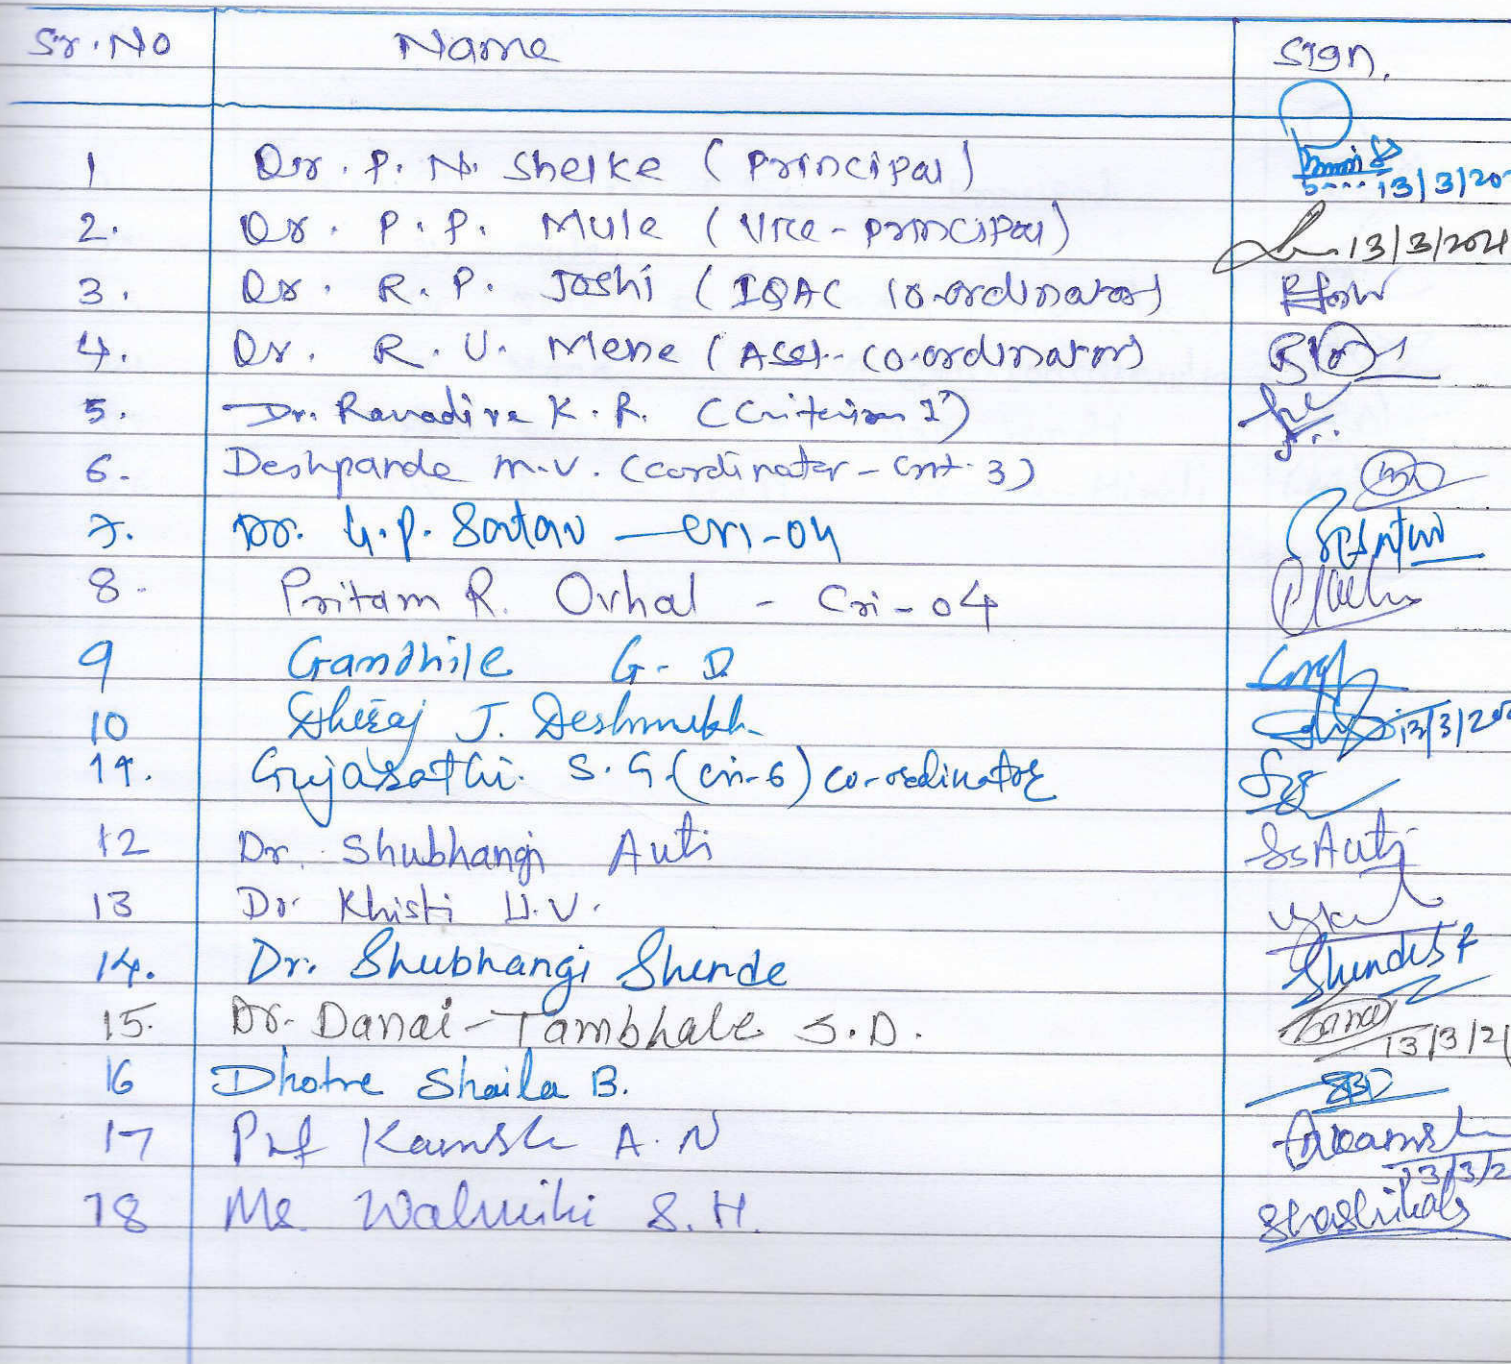 Sr. No Name Sign.
1 Dr. P. N. Shelke (Principal) 13/3/20
2. Dr. P. P. Mule (Vice-principal) 13/3/2021
3. Dr. R. P. Joshi (IQAC Co-ordinator)
4. Dr. R. U. Mene (Asst. Co-ordinator)
5. Dr. Ranadive K. R. (Criterion I)
6. Deshpande M.V. (Cordinator - Crit. 3)
7. Dr. G. P. Satav - Cri-04
8. Pritam R. Ovhal - Cri-04
9 Gandhile G. D
10 Dhiraj J. Deshmukh 13/3/20
11. Gujarathi S. G (Cri-6) co-ordinator
12 Dr. Shubhangi Auti SsAuti
13 Dr. Khisti U.V.
14. Dr. Shubhangi Shende Shende
15. Dr. Danai-Tambhale S.D. 13/3/21
16 Dhotre Shaila B. SBD
17 Prof Kamble A. N 13/3/2
18 Ms. Walmiki S. H.